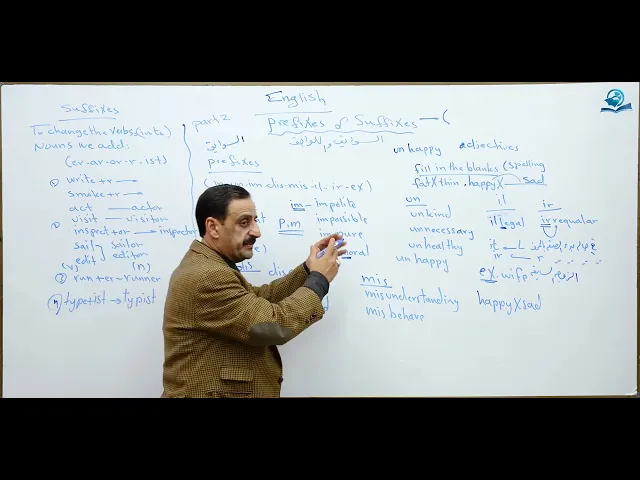 English
prefixes & Suffixes
السوابق واللواحق
Suffixes
To change the verbs (into)
Nouns we add:
(er-ar-or-r.ist)
① write+r →
smoke+r →
act — actor
visit — visitor
inspect+or → inspector
sail} sailor
edit} editor
(v) (n)
③ run+er → runner
④ type+ist → typist
part 2
السوابق
prefixes
(un-im-dis-mis-il-ir-ex)
im - impolite
P.m impossible
impure
moral
dis
mis
misunderstanding
misbehave
unhappy adjectives
fill in the blanks (spelling
fat X thin. happy X sad
un
unkind
unnecessary
unhealthy
unhappy
il
illegal
ir
irregualar
ir
ex. wife
happy X sad